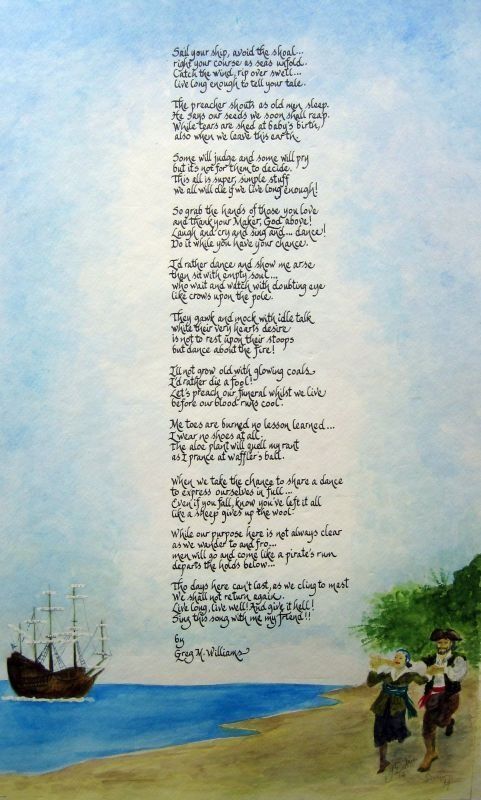 Sail your ship, avoid the shoal...
right your course as seas unfold.
Catch the wind, rip over swell...
live long enough to tell your tale.
The preacher shouts as old men sleep.
He says our seeds we soon shall reap.
While tears are shed at baby's birth,
also when we leave this earth.
Some will judge and some will pry
but it's not for them to decide.
This all is super, simple stuff
we all will die if we live long enough!
So grab the hands of those you love
and thank your Maker, God above!
Laugh and cry and sing and... dance!
Do it while you have your chance.
I'd rather dance and show me arse
than sit with empty soul...
who wait and watch with doubting eye
like crows upon the pole.
They gawk and mock with idle talk
while their very hearts desire
is not to rest upon their stoops
but dance about the fire!
I'll not grow old with glowing coals
I'd rather die a fool!
Let's preach our funeral whilst we live
before our blood runs cool.
Me toes are burned no lesson learned...
I wear no shoes at all.
The aloe plant will quell my rant
as I prance at waffler's ball.
When we take the chance to share a dance
to express ourselves in full...
Even if you fall, know you've left it all
like a sheep gives up the wool.
While our purpose here is not always clear
as we wander to and fro...
men will go and come like a pirate's rum
departs the holds below...
Tho days here can't last, as we cling to mast
We shall not return again.
Live long, live well! And give it hell!
Sing this song with me my friend!!
by
Greg M. Williams